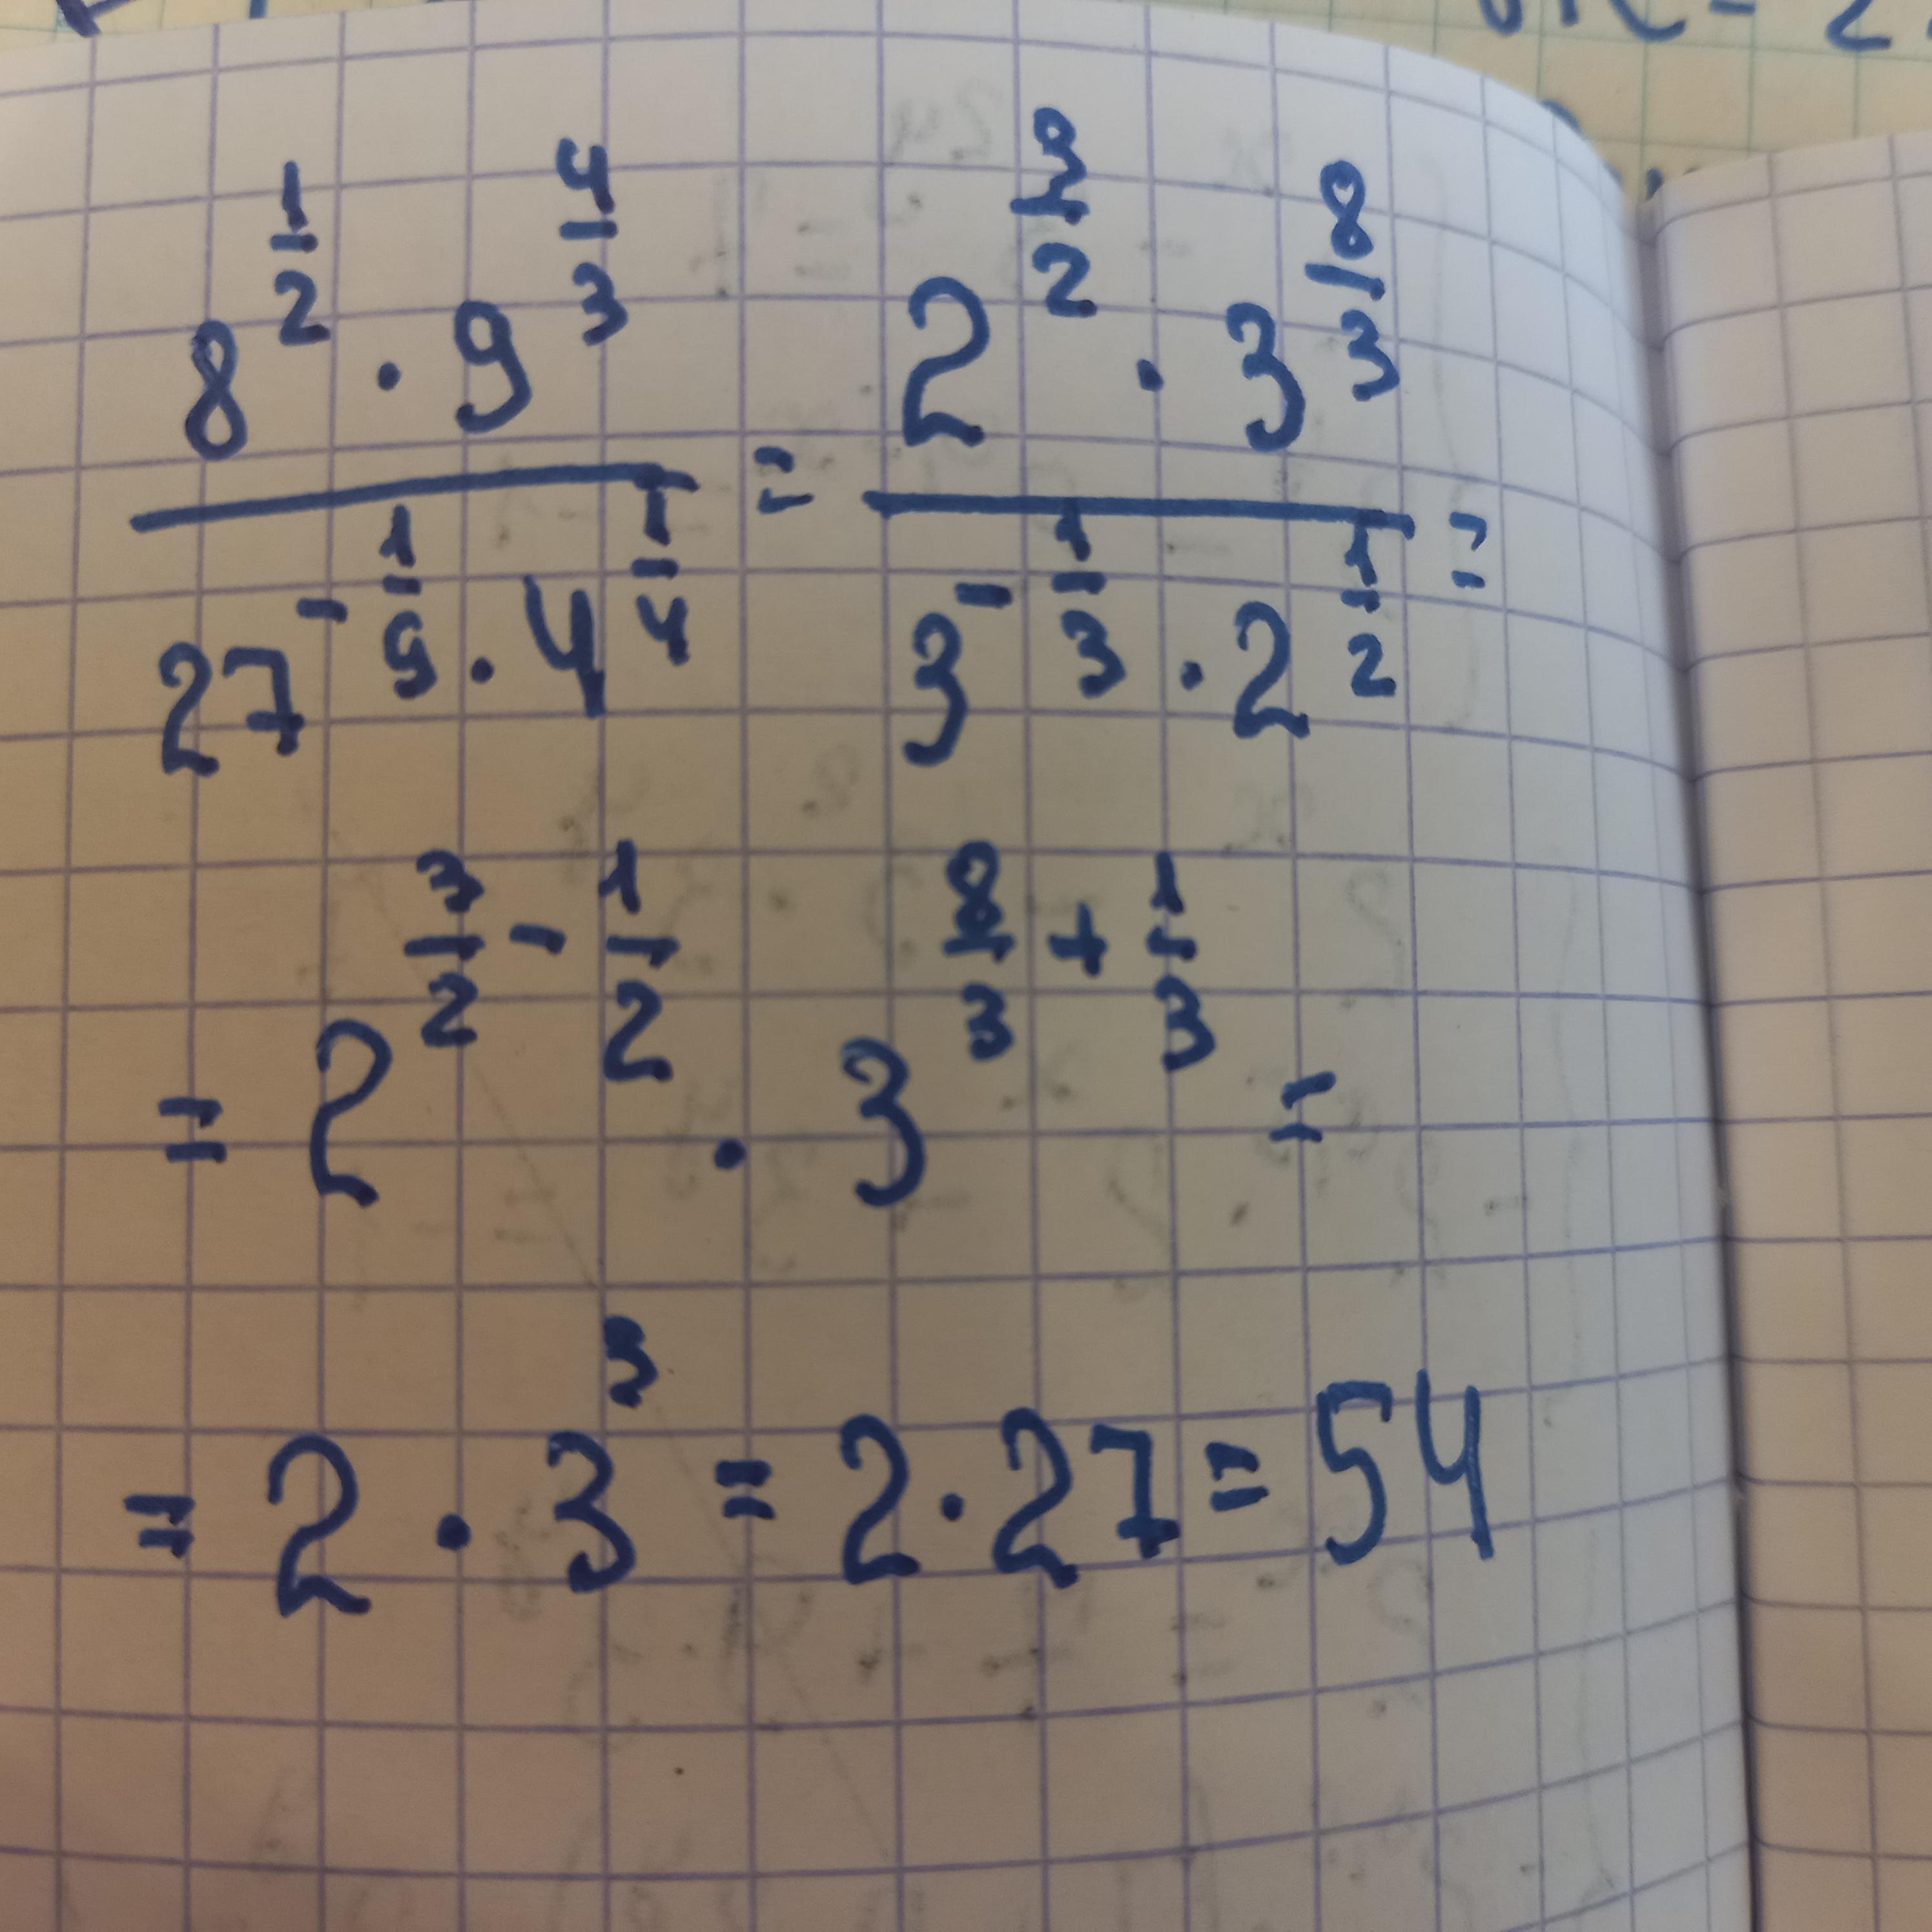 8^(1/2) · 9^(4/3) / 27^(-1/9) · 4^(1/4) = 2^(3/2) · 3^(8/3) / 3^(-1/3) · 2^(1/2) =
= 2^(3/2 - 1/2) · 3^(8/3 + 1/3) =
= 2 · 3^3 = 2 · 27 = 54